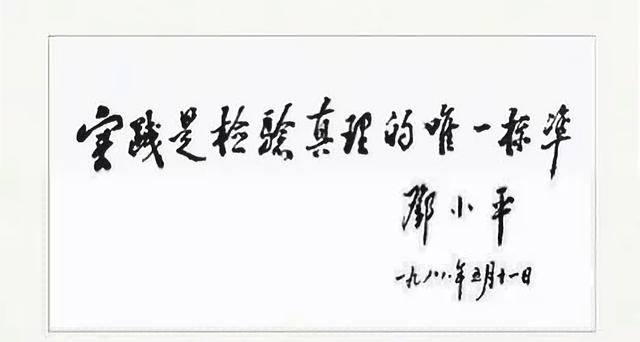 实践是检验真理的唯一标準
鄧小平
一九八八年五月十一日